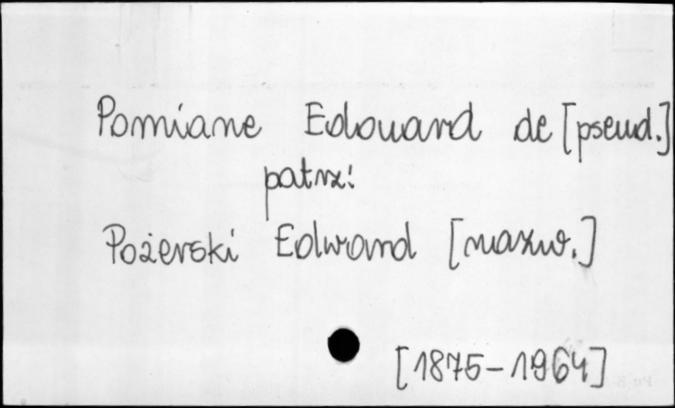 Pomiane Edouard de [pseud.]
patrz:
Pożerski Edward [nazw.]
[1875-1964]